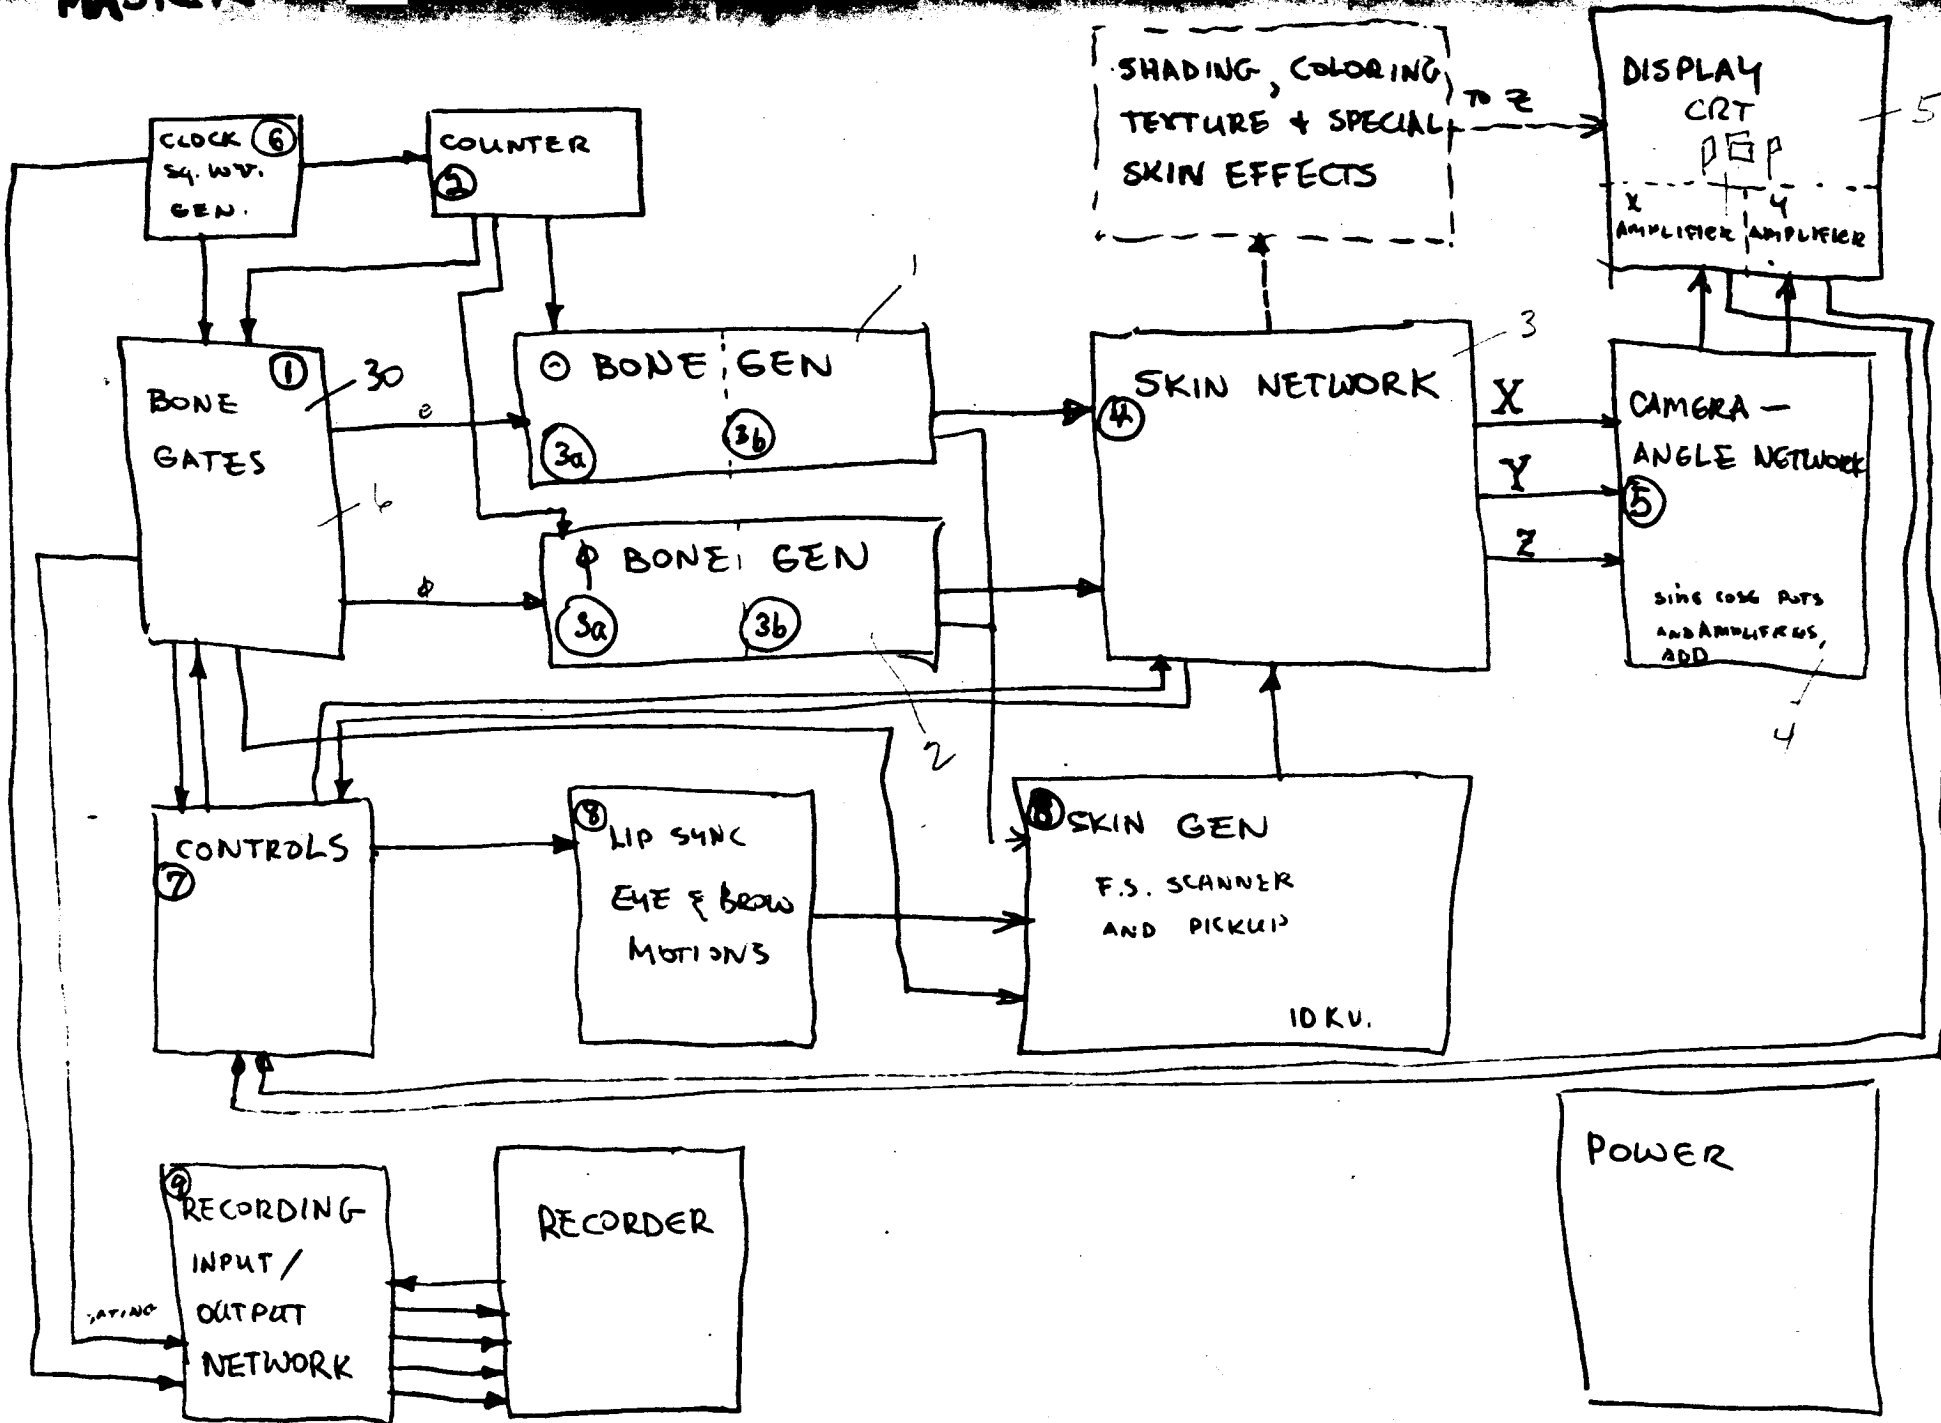 CLOCK 6
SQ. WV.
GEN.
COUNTER
2
SHADING, COLORING,
TEXTURE & SPECIAL
SKIN EFFECTS
TO Z
DISPLAY
CRT
5
X
AMPLIFIER
Y
AMPLIFIER
1
BONE
GATES
30
6
θ BONE GEN
3a
3b
1
ϕ BONE GEN
3a
3b
2
ϕ
SKIN NETWORK
4
3
X
Y
Z
CAMERA —
ANGLE NETWORK
5
AND AMPLIFIERS,
ADD
4
CONTROLS
7
8
LIP SYNC
EYE & BROW
MOTIONS
SKIN GEN
F.S. SCANNER
AND PICKUP
10 KV.
9
RECORDING
INPUT /
OUTPUT
NETWORK
RECORDER
POWER